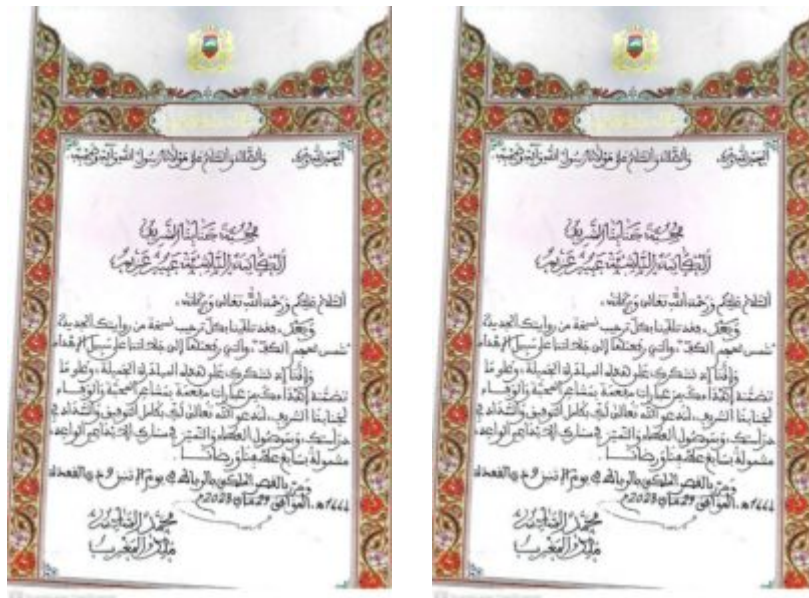 الحمد لله وحده، والصلاة والسلام على مولانا رسول الله وآله وصحبه،
محبة جنابنا الشريف
الكاتبة الناشئة عبير عزيم
السلام عليكم ورحمة الله تعالى وبركاته،
وبعد، فقد تلقينا بكل ترحيب نسخة من روايتك الجديدة
"شمس تحجم الكف"، والتي رفعتها إلى جلالتنا على سبيل الإهداء.
وإننا إذ نشكرك على هذه المبادرة الجميلة، وعلى ما
تضمنه إهداؤك من عبارات مفعمة بمشاعر المحبة والوفاء
لجنابنا الشريف، لندعو الله تعالى لك بكامل التوفيق والسداد في
دراستك، وبموصول العطاء والتميز في مسارك الإبداعي الواعد،
مشمولة بسابغ عطفنا ورضانا.
وحرر بالقصر الملكي بالرباط في يوم الإثنين 9 ذي القعدة
1444هـ، الموافق 29 ماي 2023م
محمد السادس
ملك المغرب
الحمد لله وحده، والصلاة والسلام على مولانا رسول الله وآله وصحبه،
محبة جنابنا الشريف
الكاتبة الناشئة عبير عزيم
السلام عليكم ورحمة الله تعالى وبركاته،
وبعد، فقد تلقينا بكل ترحيب نسخة من روايتك الجديدة
"شمس تحجم الكف"، والتي رفعتها إلى جلالتنا على سبيل الإهداء.
وإننا إذ نشكرك على هذه المبادرة الجميلة، وعلى ما
تضمنه إهداؤك من عبارات مفعمة بمشاعر المحبة والوفاء
لجنابنا الشريف، لندعو الله تعالى لك بكامل التوفيق والسداد في
دراستك، وبموصول العطاء والتميز في مسارك الإبداعي الواعد،
مشمولة بسابغ عطفنا ورضانا.
وحرر بالقصر الملكي بالرباط في يوم الإثنين 9 ذي القعدة
1444هـ، الموافق 29 ماي 2023م
محمد السادس
ملك المغرب